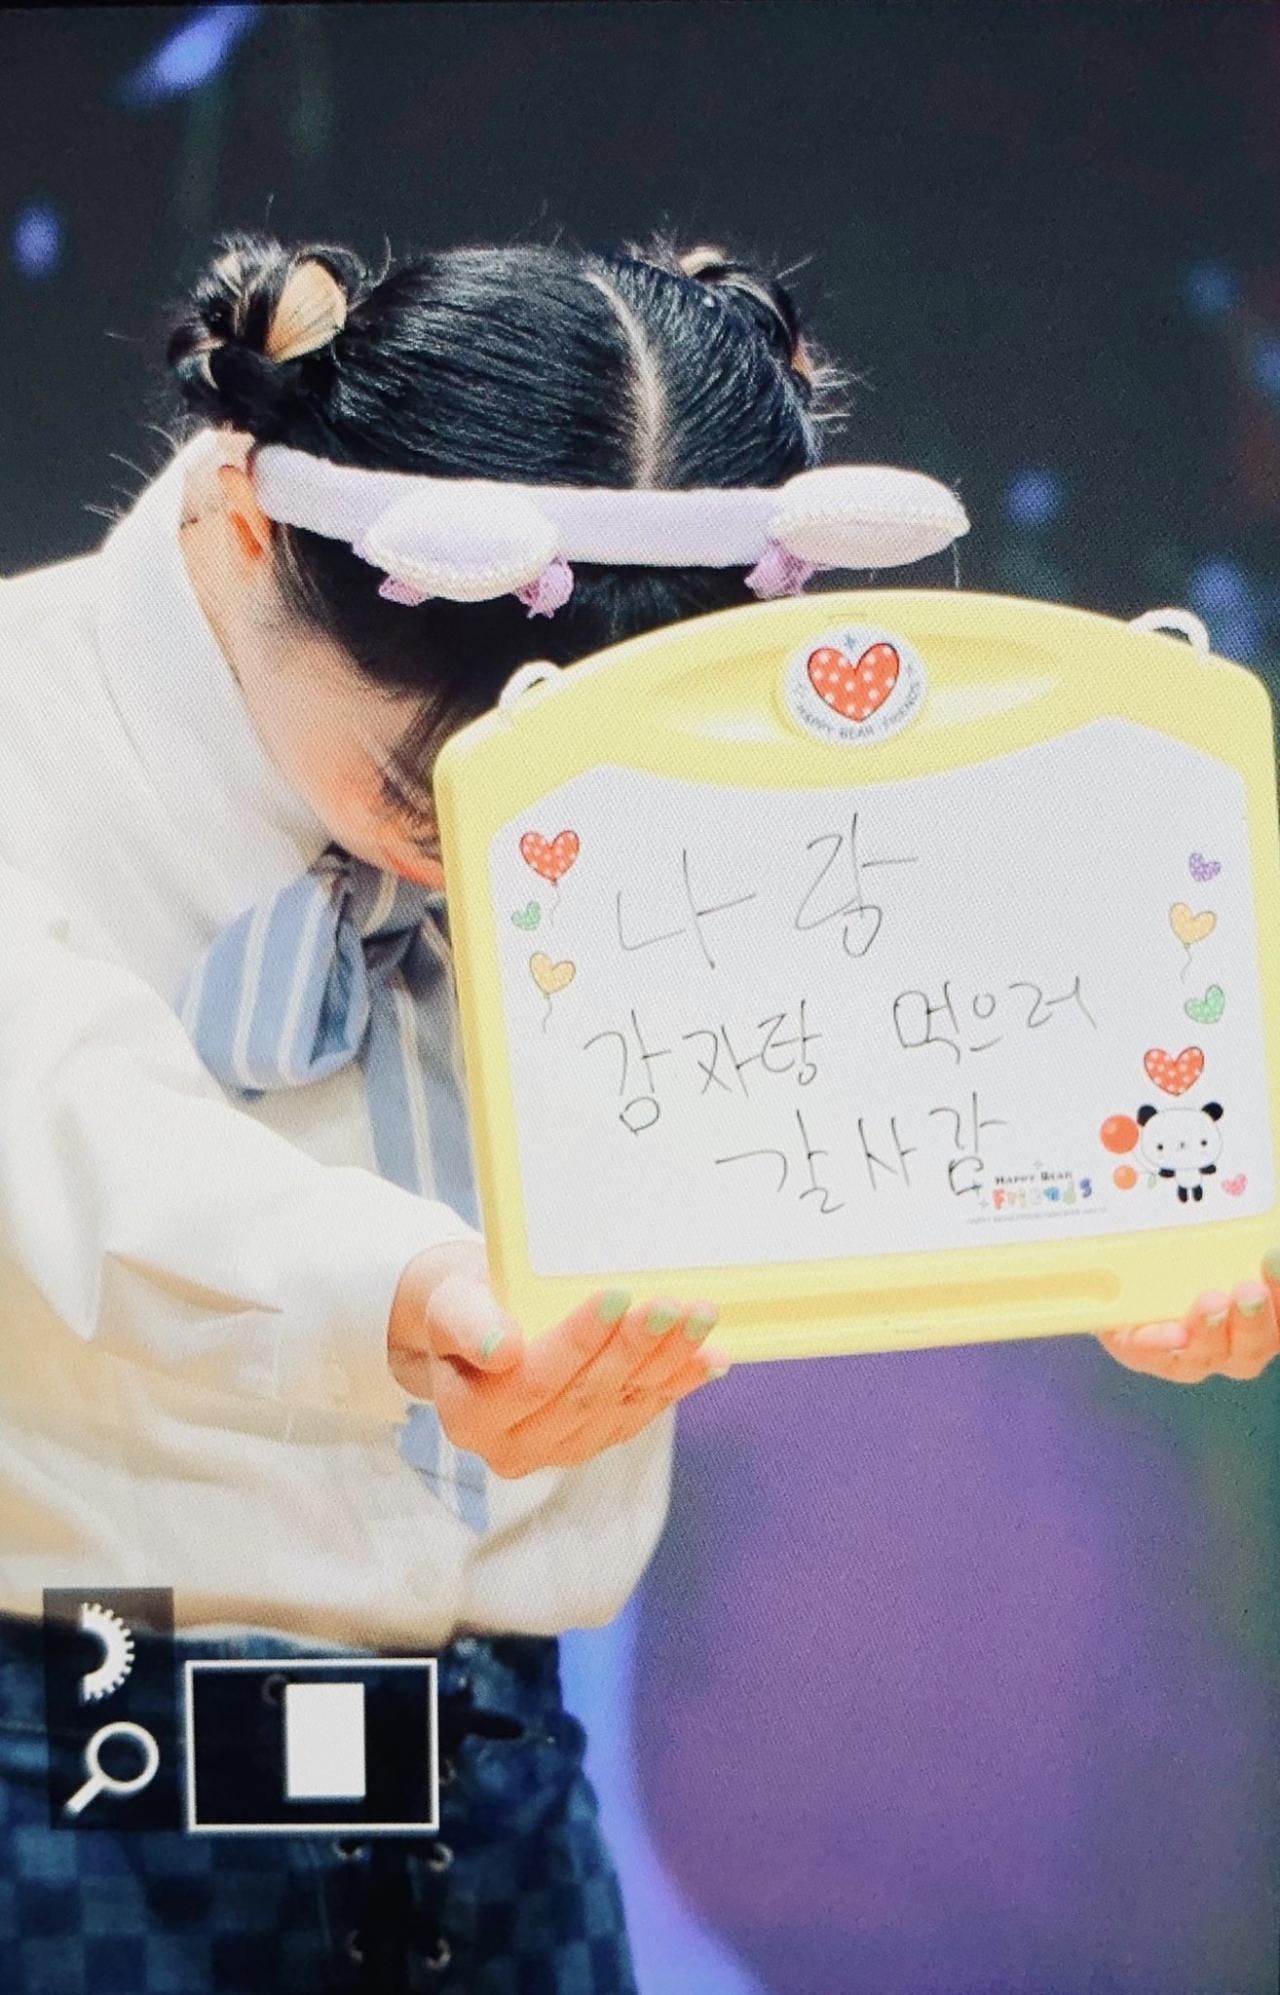 HAPPY BEAR FRIENDS
나랑
감자탕 먹으러
갈사람
HAPPY BEAR
Friends